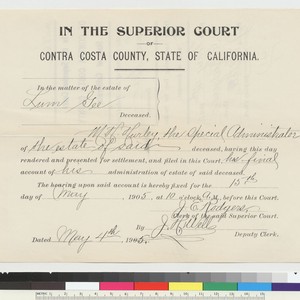 IN THE SUPERIOR COURT
OF
CONTRA COSTA COUNTY, STATE OF CALIFORNIA.
In the matter of the estate of
Lum Gee
Deceased.
the Special Administrator
of the estate of said deceased, having this day
rendered and presented for settlement, and filed in this Court, his final
account of his administration of estate of said deceased.
The hearing upon said account is hereby fixed for the 15th
day of May 1905, at 10 o'clock A.M. before this Court.
J. E. Rodgers
Clerk of the said Superior Court.
By
Dated May 4th 1905. Deputy Clerk.